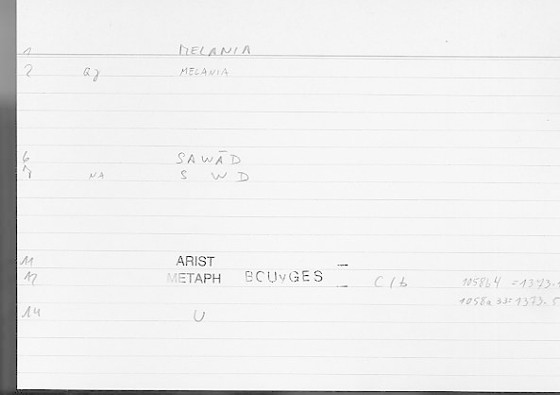 1 MELANIA
2 Qy MELANIA
6 SAWĀD
7 NA S W D
11 ARIST —
12 METAPH BOUyGES — C/b 1058b4 =1373.
1058a33=1373.5
14 U